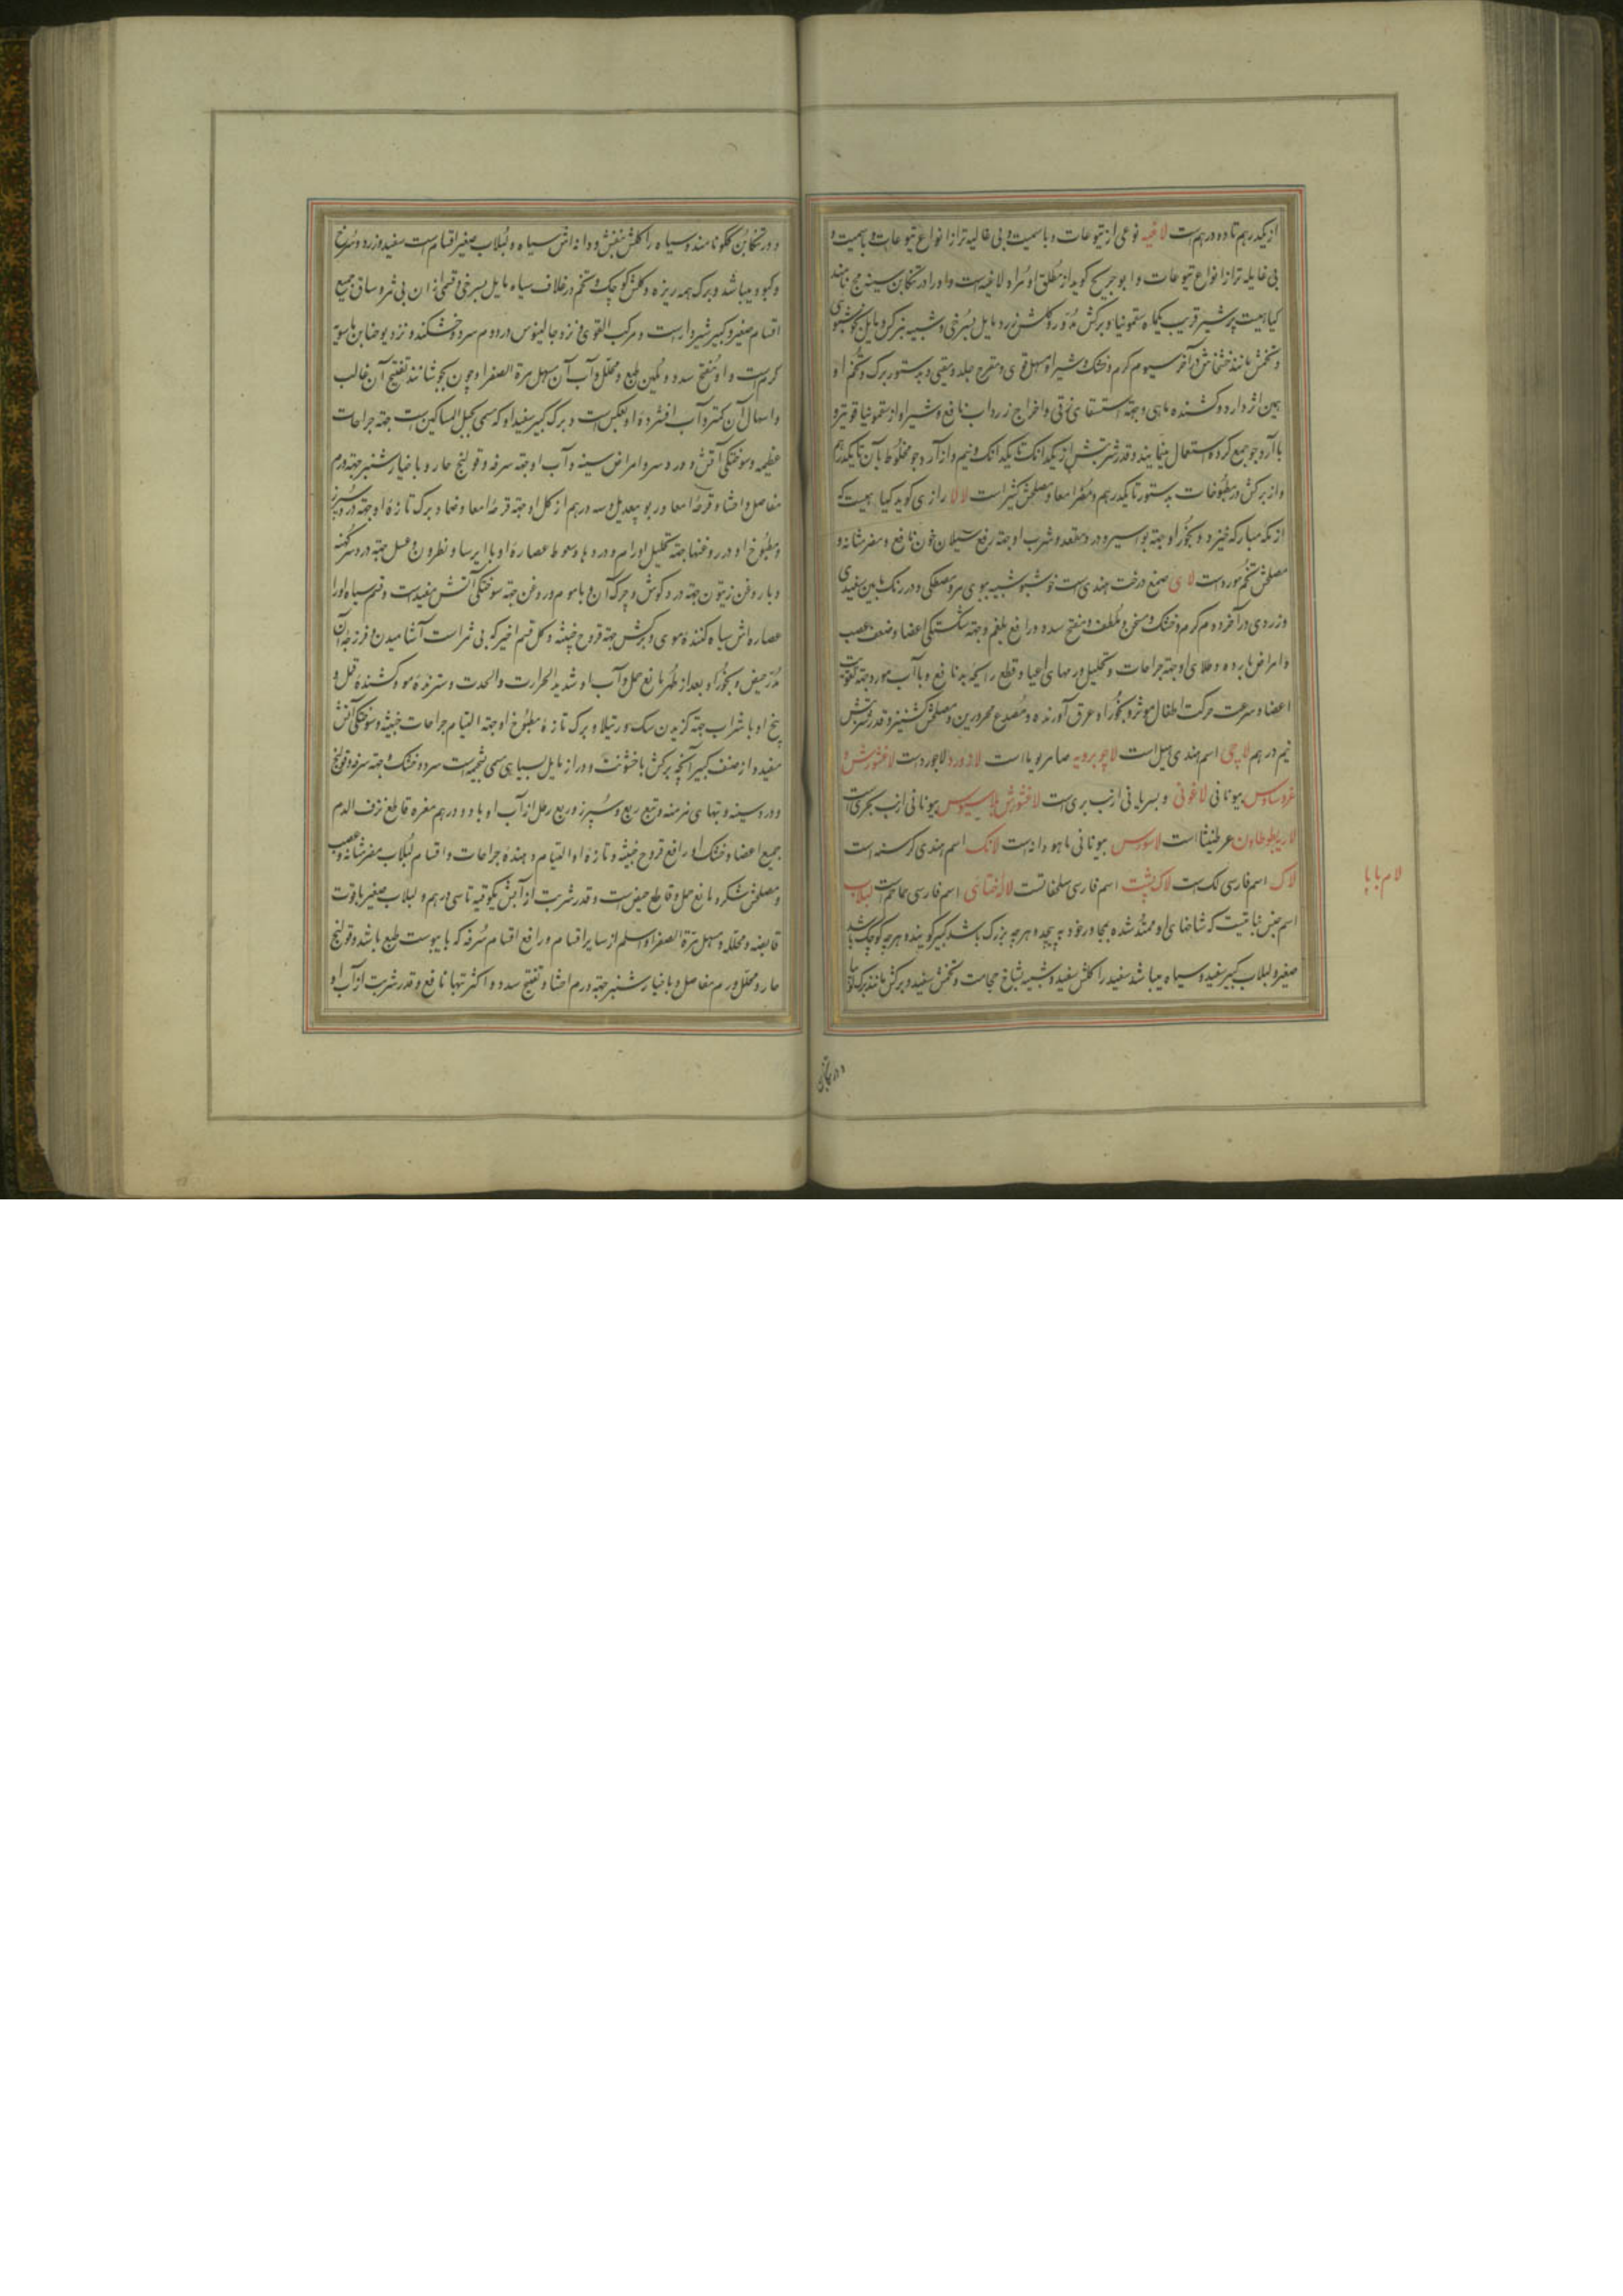 از یکدرهم تا ده درهم است لاغیه نوعی از تیوعات و با سمیت و بی غالیه تر از انواع تیوعات و با سمیت و
بی غایله تر از انواع تیوعات و ابو جریح کوید از مطلق او مراد لاغیه است و او را در تنکابن سینه مج نامند
کیاهیست پر شیر قریب بکیاه سقمونیا و برکش مدور و کلش زرد مایل بسرخی و شبیه بنرکس و مایل بخوشبوی
و تخمش مانند خشخاش در آخر سیوم کرم و خشک و شیر او مسهل قوی و مقرح جلد و مقیی و بدستور برک و تخم او
همین اثر دارد و کشنده ماهی و جهة استسقای زقی و اخراج زرداب نافع و شیر او از سقمونیا قویتر و
با آرد جو جمع کرده استعمال مینمایند و قدر شربتش از یکدانک تا یکدانک و نیم و از آرد جو مخلوط بآن تا یکدرهم
و از برکش در مطبوخات بدستور تا یکدرهم و مضر امعا و مصلحش کثیرا است لالا رازی کوید کیاهیست که
از مکه مبارکه خیزد و بخور او جهة بواسیر و درد مقعد و شرب او جهة رفع سیلان خون نافع و مضر مثانه و
مصلحش تخم مورد است لای صمغ درخت هندی است خوشبو شبیه ببوی مر و مصطکی و در رنک مابین سفیدی
و زردی در آخر دوم کرم و خشک و مسخن و ملطف و مفتح سدد و رافع بلغم و جهة شکستکی اعضا و ضعف عصب
و امراض بارده و طلای او جهة جراحات و تحلیل ورمهای اعیا و قطع رایحه بد نافع و با آب مورد جهة تقویت
اعضا و سرعت حرکت اطفال موثر و بخور او عرق آورنده و مصدع محرورین و مصلحش کشنیز و قدر شربتش
نیم درهم لاچی اسم هندی هیل است لاچوبرویه صامریوما است لازورد لاجورد است لاغنوس
بیونانی لاغونی و بسریانی ارنب بری است بیونانی ارنب بحری است
عرطنیثا است لاسورس بیونانی ماهودانه است لانک اسم هندی کرسنه است
لاک اسم فارسی لک است لاک پشت اسم فارسی سلحفات است لاله ختائی اسم فارسی حماحم است لبلاب
اسم جنس نباتیست که شاخهای او ممتد شده بمجاور خود به پیچد و هر چه بزرک باشد کبیر کویند و هر چه کوچک باشد
صغیر و لبلاب کبیر سفید و سیاه میباشد سفید را کلش سفید و شبیه بشاخ حجامت و تخمش سفید و برکش مانند برک لوبیا
لام با با
و در تنکابن کلو نامند و سیاه را کلش بنفش و دانه اش سیاه و لبلاب صغیر اقسام است سفید و زرد و سرخ
و کبود میباشد و برک همه ریزه و کلش کوچک و تخم در غلاف سیاه مایل بسرخی و قسمی از ان بی ثمر و ساق جمیع
اقسام صغیر و کبیر شیردار است و مرکب القوی و نزد جالینوس در دوم سرد و خشکند و نزد یوحنا بن ماسویه
کرم است و او مفتح سدد و ملین طبع و محلل و آب آن مسهل مرة الصفرا و چون بجوشانند تفتیح آن غالب
و اسهال آن کمتر و آب افشرده او بعکس است و برک کبیر سفید او که مسمی بحبل المساکین است جهة جراحات
عظیمه و سوختکی آتش و درد سر و امراض سینه و آب او جهة سرفه و قولنج حار و با خیارشنبر جهة ورم
مفاصل و احشا و قرحه امعا و ربو بیعدیل و سه درهم از کل او جهة قرحه امعا و ضماد برک تازه او جهة درد سپرز
و مطبوخ او در روغنها جهة تحلیل اورام و دردها و سعوط عصاره او با ایرسا و نطرون و عسل جهة درد سر کهنه
و با روغن زیتون جهة درد کوش و چرک آن و با موم و روغن جهة سوختکی آتش مفید است و قسم سیاه او را
عصاره اش سیاه کننده موی و برکش جهة قروح خبیثه و کل قسم اخیر که بی ثمر است آشامیدن و فرزجه آن
مدر حیض و بخور او بعد از طهر مانع حمل و آب او شدید الحرارت و الحدت و سترنده مو و کشنده قمل و
بیخ او با شراب جهة کزیدن سک و رتیلا و برک تازه مطبوخ او جهة التیام جراحات خبیثه و سوختکی آتش
مفید و از صنف کبیر آنچه برکش با خشونت و دراز مایل بسیاهی مسمی بشجیره است سرد و خشک و جهة سرفه و قولنج
و درد سینه و تبهای مزمنه و تب ربع و سپرز و ربع رطل از آب او با دو درهم مغره قاطع نزف الدم
جمیع اعضا و خشک او رافع قروح خبیثه و تازه او التیام دهنده جراحات و اقسام لبلاب مضر مثانه و عصب
و مصلحش شکر و مانع حمل و قاطع حیض است و قدر شربت از آبش یکوقیه تا سی درهم و لبلاب صغیر با قوت
قابضه و محلله و مسهل مرة الصفرا و اسلم از سایر اقسام و رافع اقسام سرفه که با یبوست طبع باشد و قولنج
حار و محلل ورم مفاصل و با خیارشنبر جهة ورم احشا و تفتیح سدد و اکثر تبها نافع و قدر شربت از آب او